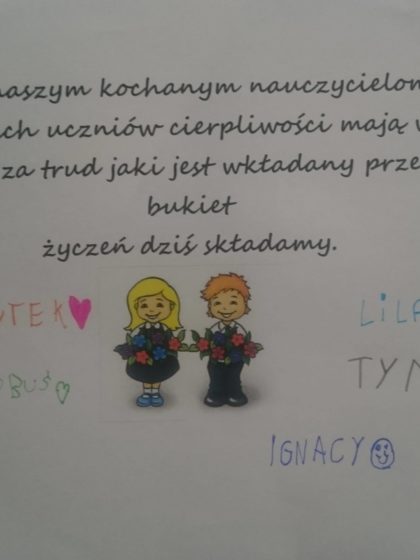 naszym kochanym nauczycielom
ch uczniów cierpliwości mają w
za trud jaki jest wkładany prze
bukiet
życzeń dziś składamy.
TEK
LILA
BUŚ
TYM
IGNACY